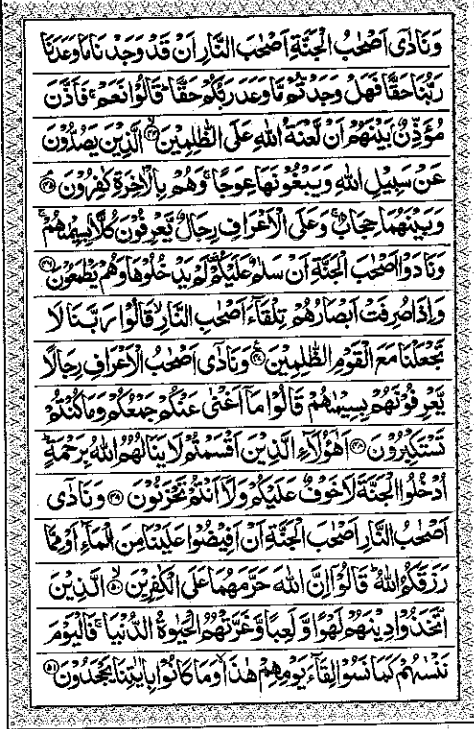 وَنَادٰۤى اَصْحٰبُ الْجَنَّةِ اَصْحٰبَ النَّارِ اَنْ قَدْ وَجَدْنَا مَا وَعَدَنَا
رَبُّنَا حَقًّا فَهَلْ وَجَدْتُّمْ مَّا وَعَدَ رَبُّكُمْ حَقًّا ؕ قَالُوْا نَعَمْ ۚ فَاَذَّنَ
مُؤَذِّنٌۢ بَيْنَهُمْ اَنْ لَّعْنَةُ اللّٰهِ عَلَى الظّٰلِمِيْنَ ﴿۴۴﴾ الَّذِيْنَ يَصُدُّوْنَ
عَنْ سَبِيْلِ اللّٰهِ وَيَبْغُوْنَهَا عِوَجًا ۚ وَهُمْ بِالْاٰخِرَةِ كٰفِرُوْنَ ﴿۴۵﴾
وَبَيْنَهُمَا حِجَابٌ ۚ وَعَلَى الْاَعْرَافِ رِجَالٌ يَّعْرِفُوْنَ كُلًّاۢ بِسِيْمٰىهُمْ ۚ
وَنَادَوْا اَصْحٰبَ الْجَنَّةِ اَنْ سَلٰمٌ عَلَيْكُمْ ۫ لَمْ يَدْخُلُوْهَا وَهُمْ يَطْمَعُوْنَ ﴿۴۶﴾
وَاِذَا صُرِفَتْ اَبْصَارُهُمْ تِلْقَآءَ اَصْحٰبِ النَّارِ ۙ قَالُوْا رَبَّنَا لَا
تَجْعَلْنَا مَعَ الْقَوْمِ الظّٰلِمِيْنَ ﴿۴۷﴾ وَنَادٰۤى اَصْحٰبُ الْاَعْرَافِ رِجَالًا
يَّعْرِفُوْنَهُمْ بِسِيْمٰىهُمْ قَالُوْا مَاۤ اَغْنٰى عَنْكُمْ جَمْعُكُمْ وَمَا كُنْتُمْ
تَسْتَكْبِرُوْنَ ﴿۴۸﴾ اَهٰۤؤُلَآءِ الَّذِيْنَ اَقْسَمْتُمْ لَا يَنَالُهُمُ اللّٰهُ بِرَحْمَةٍ ؕ
اُدْخُلُوا الْجَنَّةَ لَا خَوْفٌ عَلَيْكُمْ وَلَاۤ اَنْتُمْ تَحْزَنُوْنَ ﴿۴۹﴾ وَنَادٰۤى
اَصْحٰبُ النَّارِ اَصْحٰبَ الْجَنَّةِ اَنْ اَفِيْضُوْا عَلَيْنَا مِنَ الْمَآءِ اَوْ مِمَّا
رَزَقَكُمُ اللّٰهُ ؕ قَالُوْۤا اِنَّ اللّٰهَ حَرَّمَهُمَا عَلَى الْكٰفِرِيْنَ ﴿۵۰﴾ الَّذِيْنَ
اتَّخَذُوْا دِيْنَهُمْ لَهْوًا وَّلَعِبًا وَّغَرَّتْهُمُ الْحَيٰوةُ الدُّنْيَا ۚ فَالْيَوْمَ
نَنْسٰىهُمْ كَمَا نَسُوْا لِقَآءَ يَوْمِهِمْ هٰذَا ۙ وَمَا كَانُوْا بِاٰيٰتِنَا يَجْحَدُوْنَ ﴿۵۱﴾